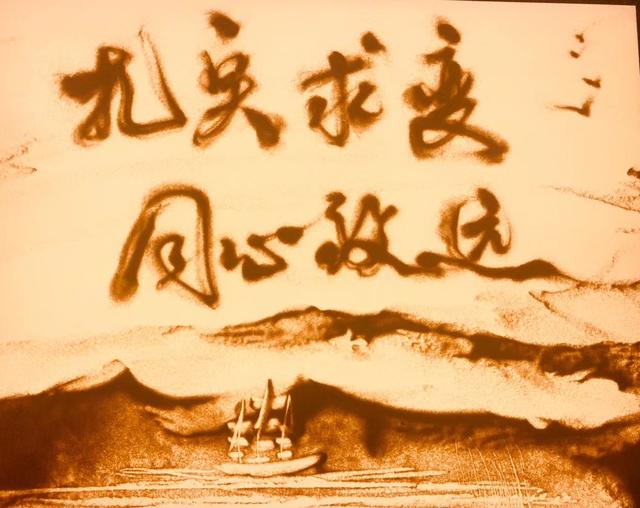 扎实求变
同心致远